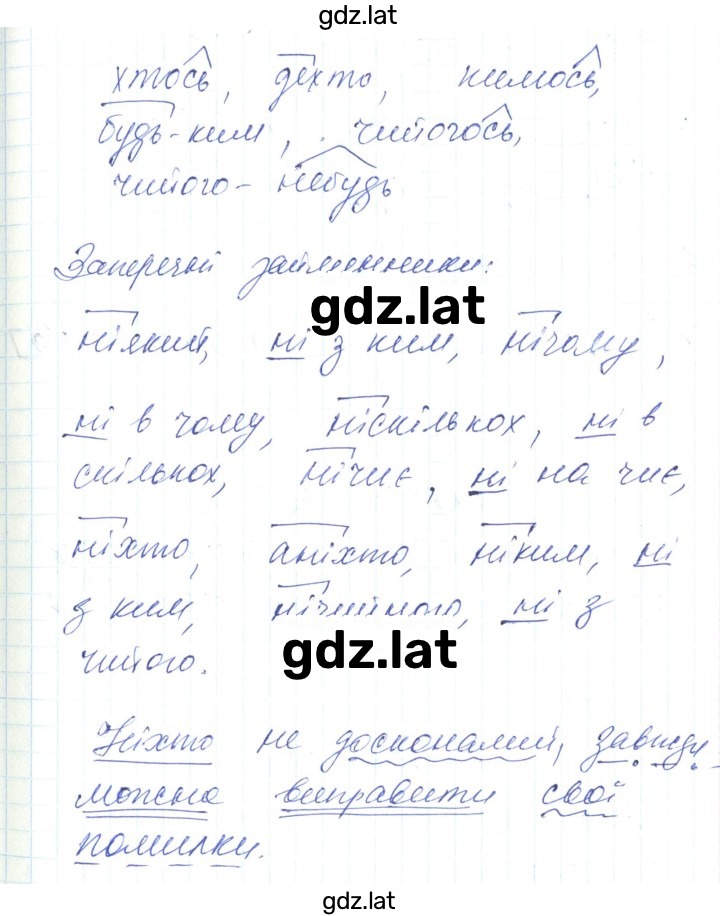 gdz.lat
хтось, дехто, кимось,
будь-ким, чийогось,
чийого-небудь
Заперечні займенники:
gdz.lat
ніякий, ні з ким, нічому,
ні в чому, ніскількох, ні в
скількох, нічиє, ні на чиє,
ніхто, аніхто, ніким, ні
з ким, нічийного, ні з
gdz.lat
чийого.
Ніхто не досконалий, завжди
можна виправити свої
помилки.
gdz.lat